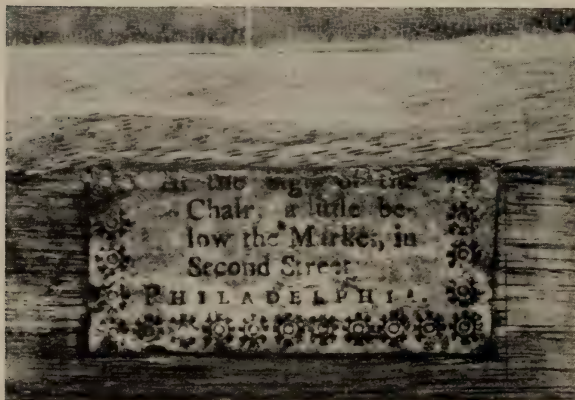 At the Sign of the
Chair, a little be-
low the Market, in
Second Street
PHILADELPHIA.